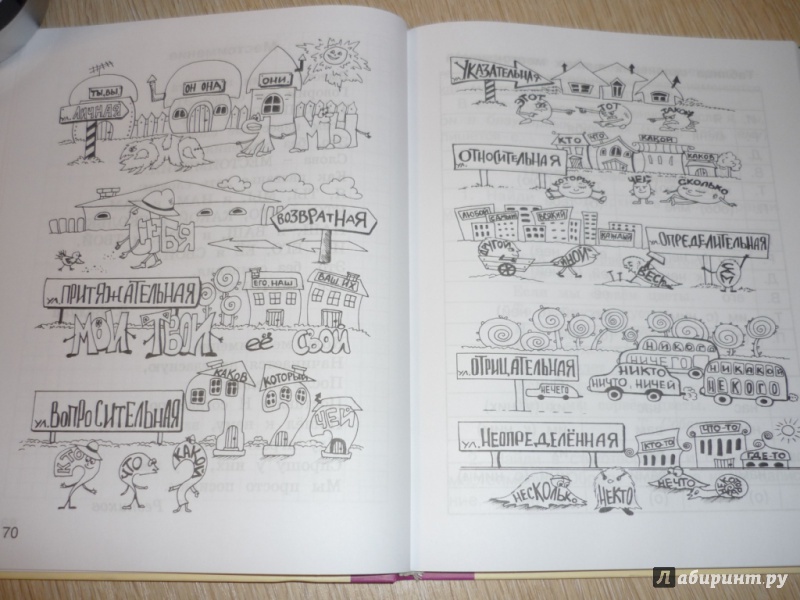 ТЫ, ВЫ
ОН ОНА
ОНИ
ул. ЛИЧНАЯ
Я
МЫ
ВОЗВРАТНАЯ
СЕБЯ
ул. ПРИТЯЖАТЕЛЬНАЯ
ЕГО, НАШ
ВАШ, ИХ
МОЙ ТВОЙ её СВОЙ
КАКОВ
КОТОРЫЙ
ЧЕЙ
ул. ВОПРОСИТЕЛЬНАЯ
КТО
ЧТО
КАКОЙ
Мы просто
70
УКАЗАТЕЛЬНАЯ
ЭТОТ
ТОТ
ТАКОЙ
КТО
ЧТО
КАКОЙ
КАКОВ
ул. ОТНОСИТЕЛЬНАЯ
КОТОРЫЙ
ЧЕЙ
СКОЛЬКО
ЛЮБОЙ
ВСЯКИЙ
КАЖДЫЙ
ул. ОПРЕДЕЛИТЕЛЬНАЯ
ДРУГОЙ
ИНОЙ
ВЕСЬ
НИКОГО
НИЧЕГО
ул. ОТРИЦАТЕЛЬНАЯ
НЕЧЕГО
НИКТО
НИЧТО, НИЧЕЙ
НИКАКОЙ
НЕКОГО
ул. НЕОПРЕДЕЛЁННАЯ
КТО-ТО
ЧТО-ТО
ГДЕ-ТО
НЕСКОЛЬКО
НЕКТО
НЕЧТО
Лабиринт.ру